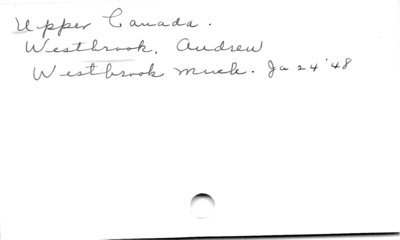 Upper Canada.
Westbrook, Andrew
Westbrook Much. Ja 24 '48